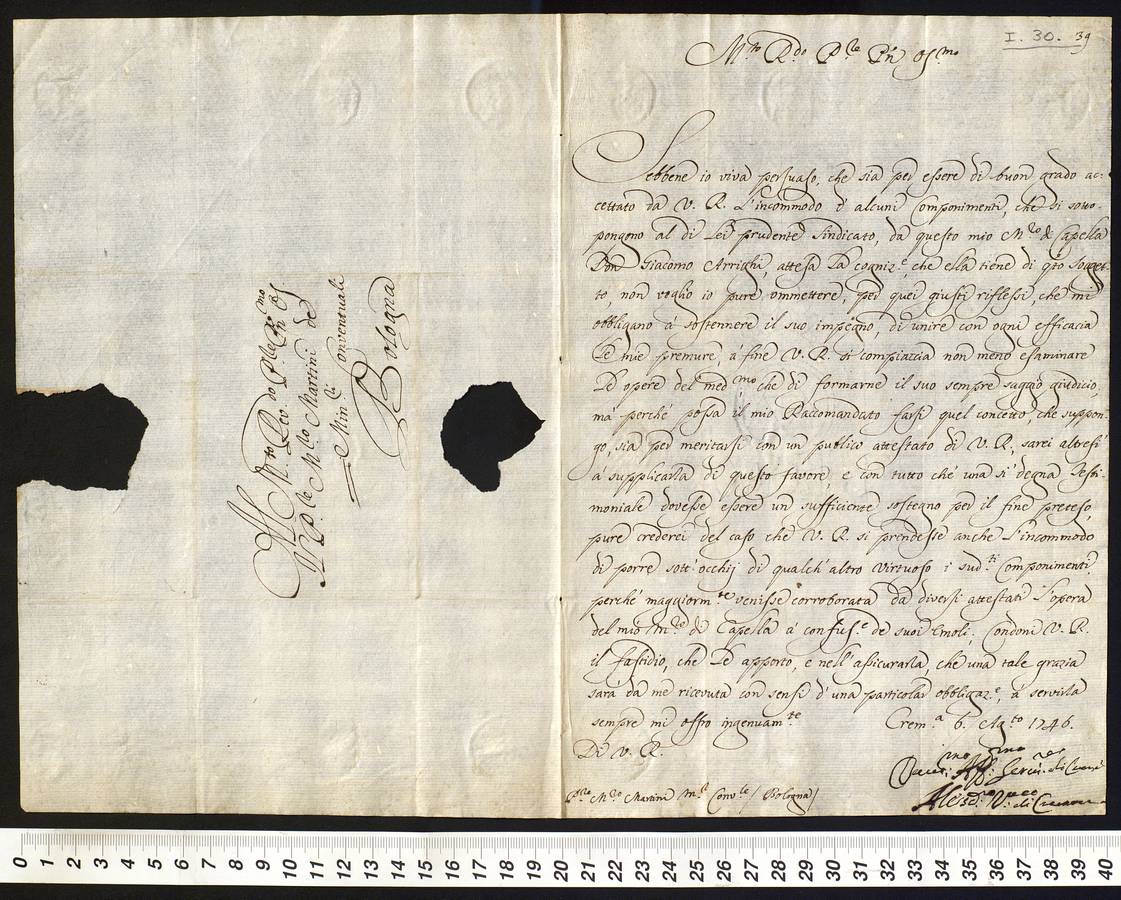 Al M.to Rev.do P.re P.n Os.mo
Il P.re M.ro Martini de
Min.ri Conventuali
Bologna
I. 30. 39
M.to R.do P.re P.n Os.mo
Sebbene io viva persuaso, che sia per essere di buon grado ac-
cettato da V. R. l'incommodo d'alcuni Componimenti, che si sotto-
pongono al di Lei prudente Sindicato, da questo mio M.ro di Capella
Don Giacomo Arrighi, attesa la cogniz.e, che ella tiene di q.to Sogget-
to, non voglio io pure ommettere, per quei giusti riflessi, che mi
obbligano à sostennere il suo impegno, di unire con ogni efficacia
le mie premure, à fine V. R. si compiaccia non meno esaminare
le opere del med.mo che di formarne il suo sempre saggio giudicio,
mà perché possa il mio Raccomandato farsi quel concetto, che suppon-
go, sia per meritarsi con un publico attestato di V. R., sarei altresi
à supplicarla di questo favore, e con tutto ché una sì degna Testi-
moniale dovesse essere un sufficiente sostegno per il fine preteso,
pure crederei del caso che V. R. si prendesse anche l'incommodo
di porre sott'occhij di qualch'altro Virtuoso i sud.ti Componimenti,
perché maggiorm.te venisse corroborata da diversi attestati l'opera
del mio M.ro di Capella à confus.e de suoi Emoli; Condoni V. R.
il fastidio, che le apporto, e nell'assicurarla, che una tale grazia
sarà da me ricevuta con sensi d'una particolar obbligaz.e, à servirla
sempre mi offro ingenuam.te Crem.a 6. Ag.to 1746.
Di V. R.
P.re M.ro Martini M.r Conv.le / Bologna /
Aless.o V. di Cremona